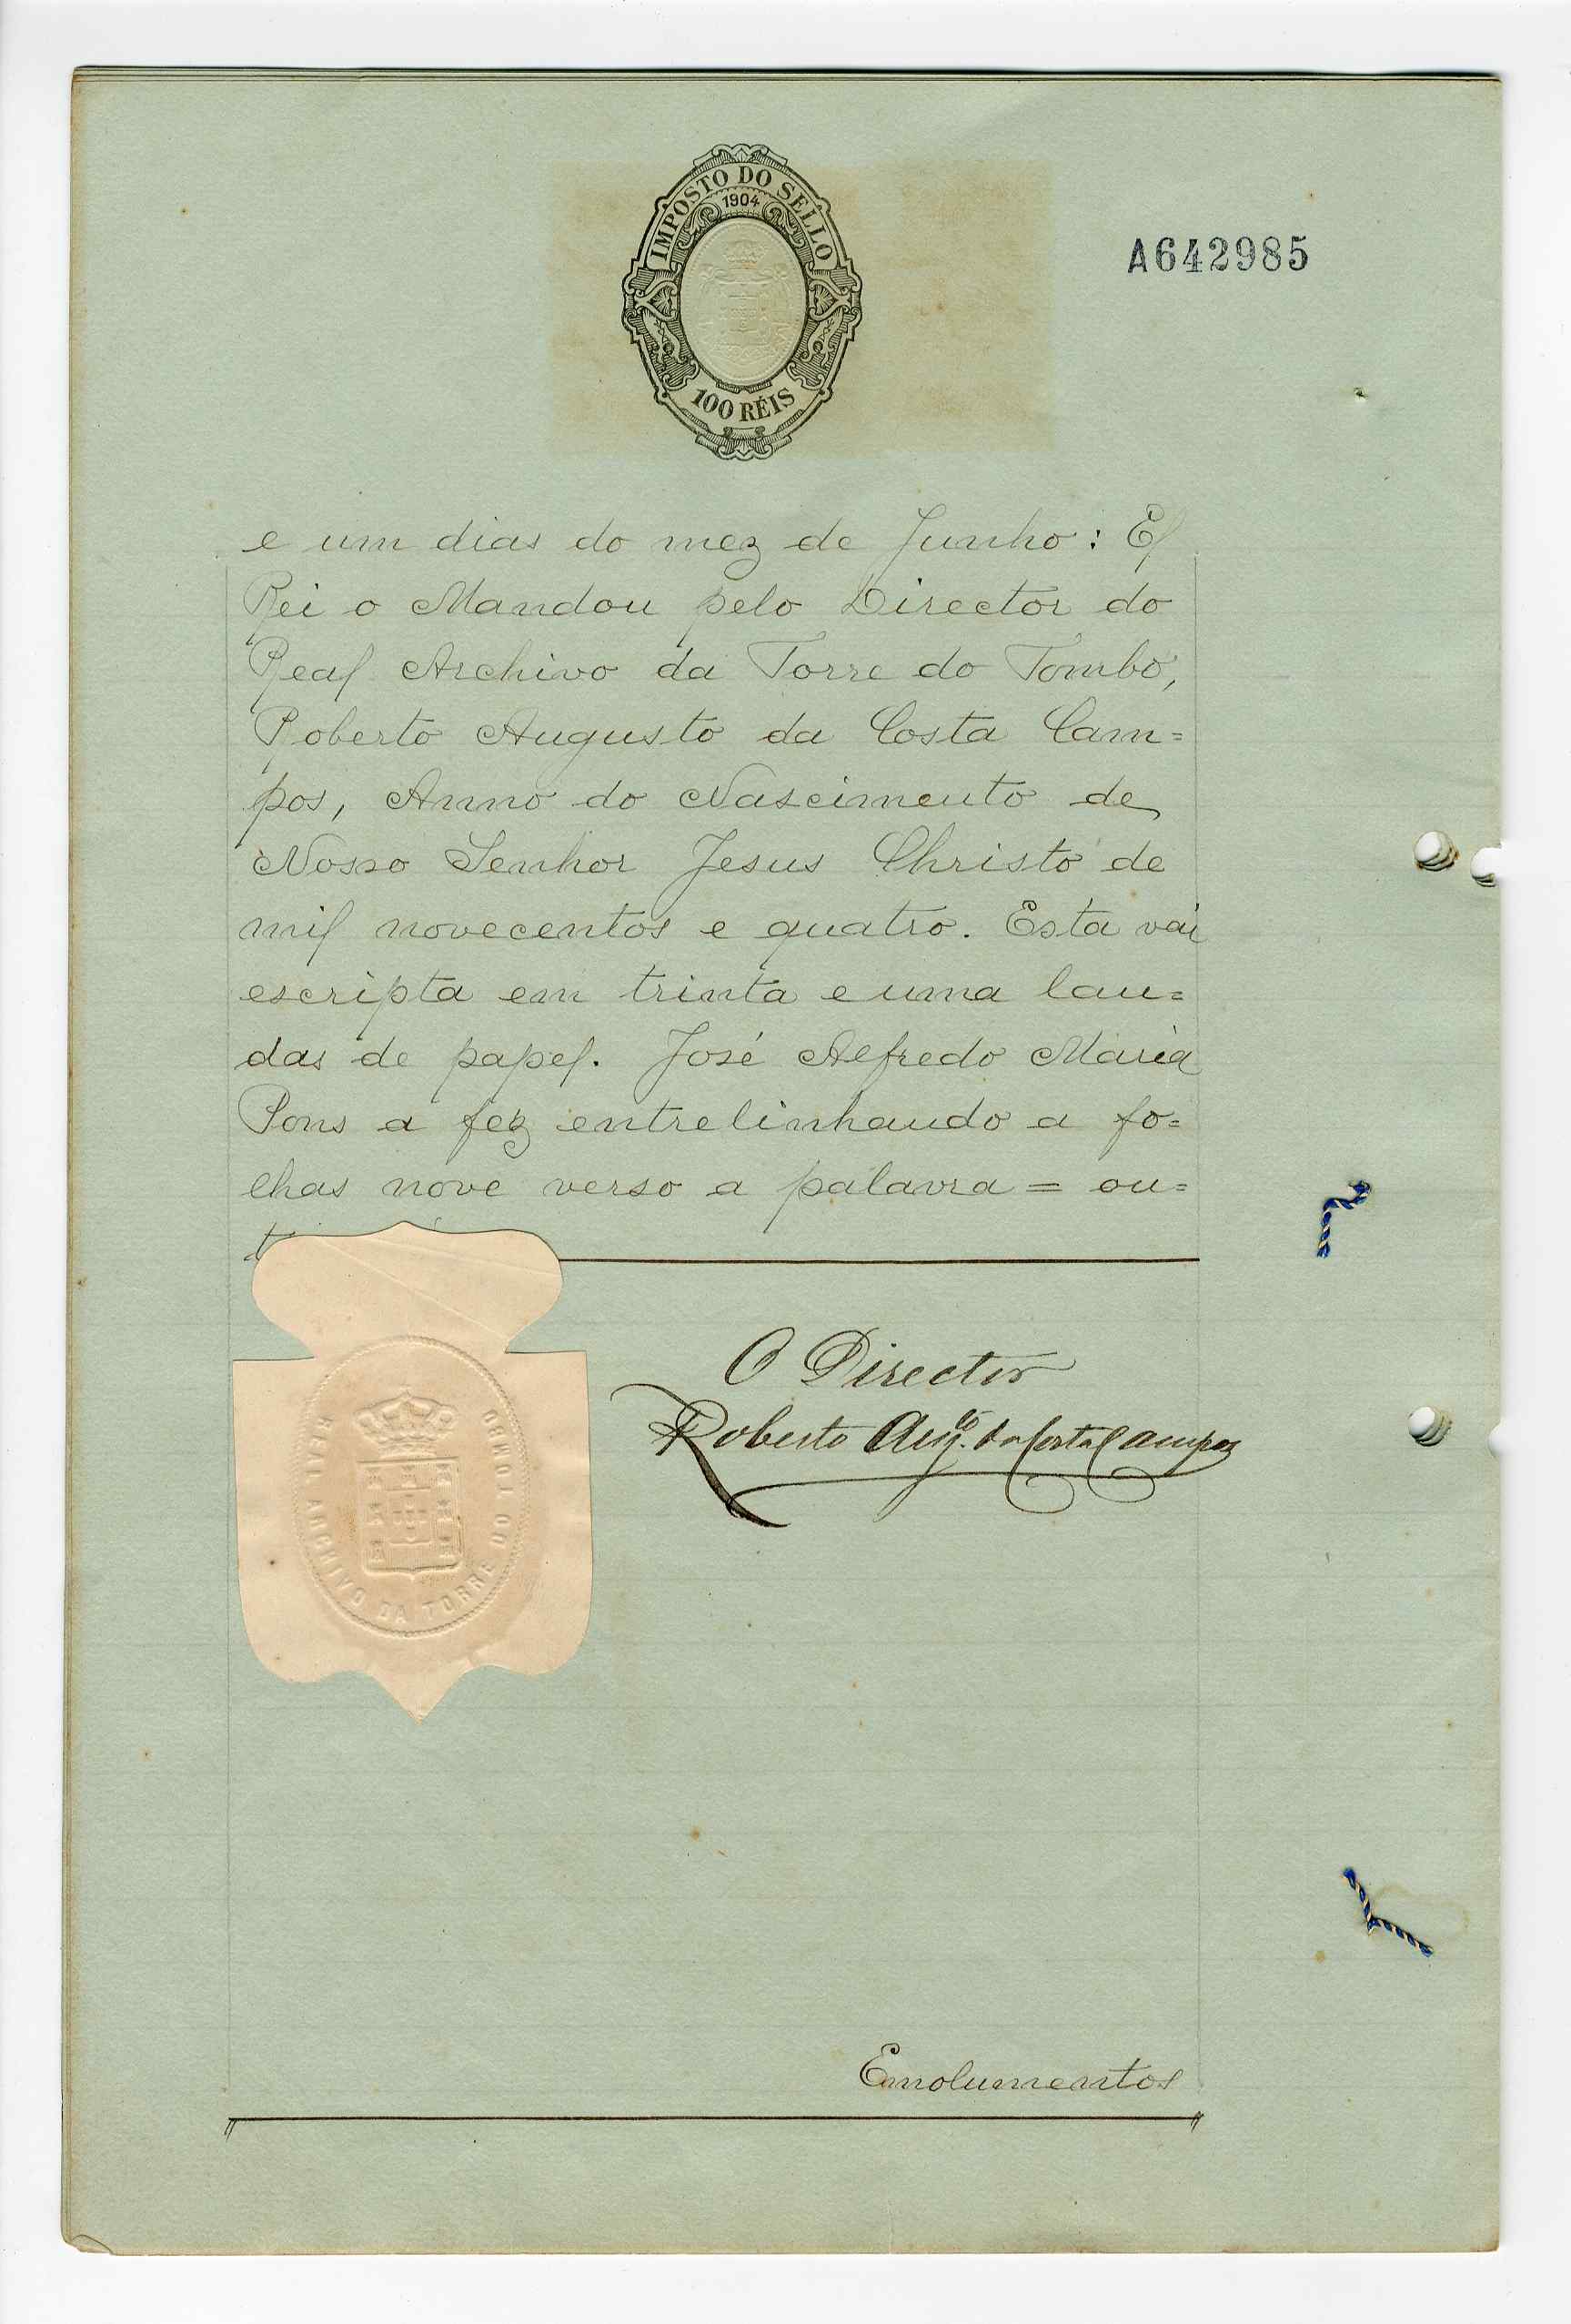 IMPOSTO DO SELLO
1904
100 RÉIS
A642985
e um dias do mez de Junho: El
Rei o Mandou pelo Director do
Real Archivo da Torre do Tombo,
Roberto Augusto da Costa Cam=
pos, Anno do Nascimento de
Nosso Senhor Jesus Christo de
mil novecentos e quatro. Esta vai
escripta em trinta e uma lau=
das de papel. José Alfredo Maria
Pons a fez entrelinhando a fo=
lhas nove verso a palavra = ou=
O Director
Roberto Augto. da Costa Campos
REAL ARCHIVO DA TORRE DO TOMBO
Emolumentos